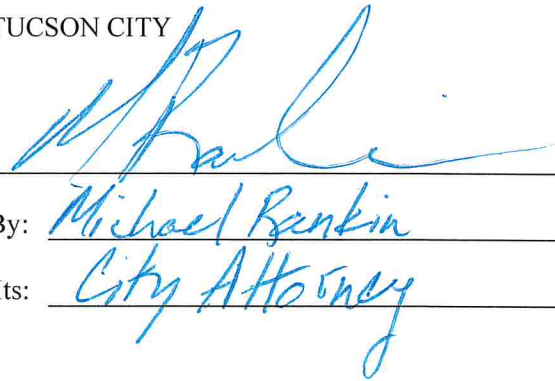 TUCSON CITY
M Rankin
By: Michael Rankin
Its: City Attorney